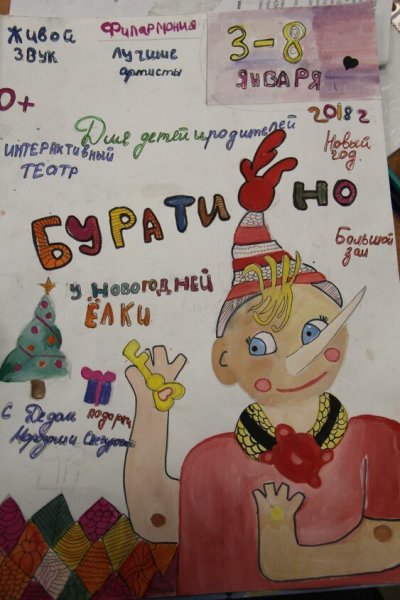 Живой звук
Филармония
Лучшие артисты
3-8 января
0+
2018 г
Для детей и родителей
Интерактивный театр
Новый год
БУРАТИНО
Большой зал
у новогодней ёлки
С Дедом
Морозом и Снегурочкой
подарки